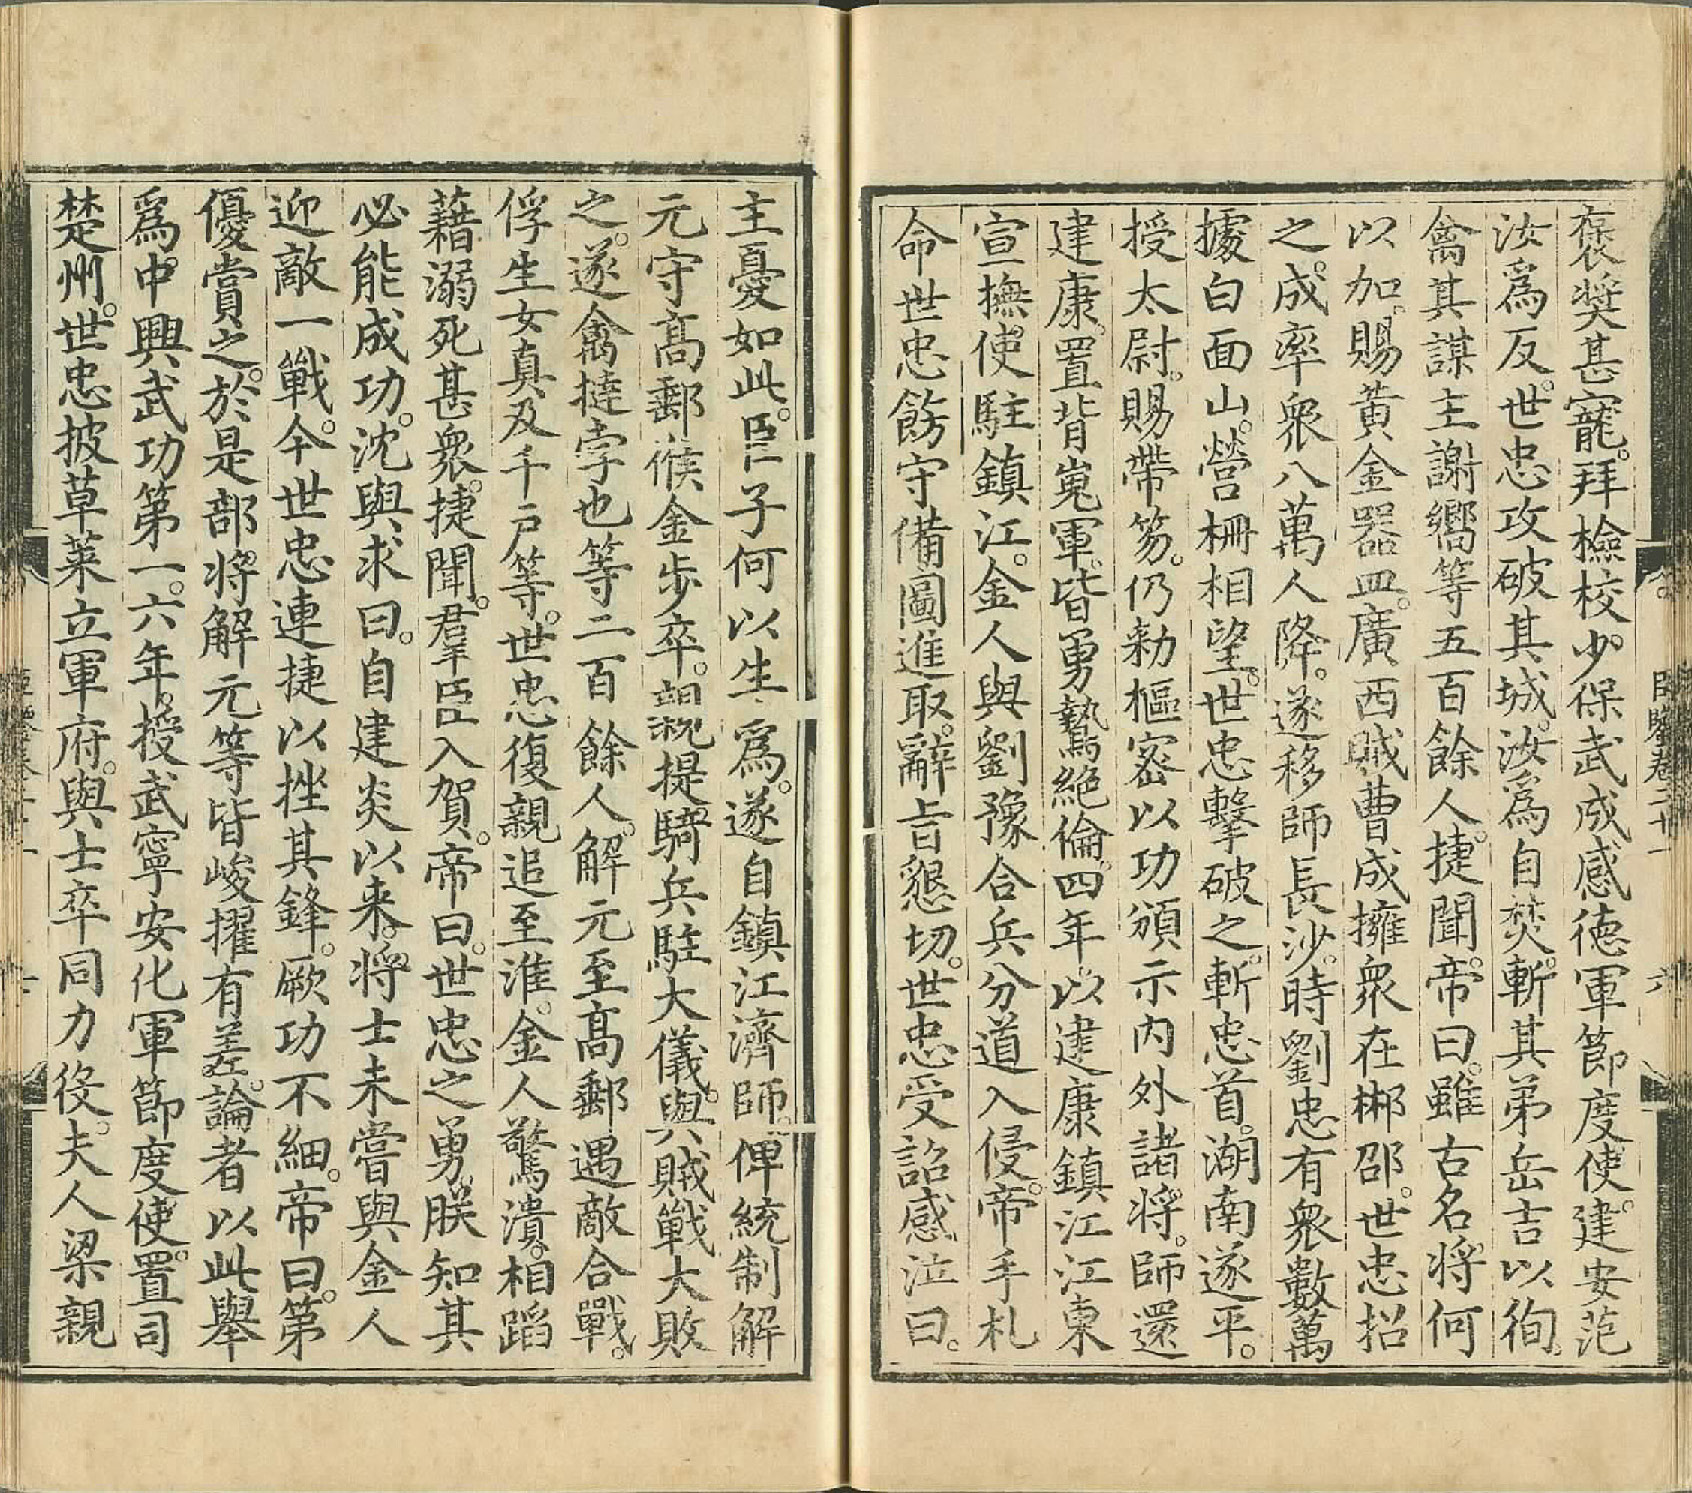 褒奨甚寵。拜檢校少保武成感德軍節度使。建安范
汝爲反。世忠攻破其城。汝爲自焚。斬其弟岳吉以徇。
禽其謀主謝嚮等五百餘人。捷聞。帝曰。雖古名將何
以加。賜黃金器皿。廣西賊曹成擁衆在郴邵。世忠招
之。成率衆八萬人降。遂移師長沙。時劉忠有衆數萬
據白面山。營柵相望。世忠擊破之。斬忠首。湖南遂平。
授太尉。賜帶笏。仍勑樞密以功頒示內外諸將。師還
建康。置背嵬軍。皆勇鷙絕倫。四年。以建康鎮江江東
宣撫使駐鎮江。金人與劉豫合兵分道入侵。帝手札
命世忠飭守備圖進取。辭旨懇切。世忠受詔感泣曰。
主憂如此。臣子何以生爲。遂自鎮江濟師。俾統制解
元守高郵候金步卒。親提騎兵駐大儀。與賊戰大敗
之。遂禽撻孛也等二百餘人。解元至高郵遇敵合戰。
俘生女真及千戶等。世忠復親追至淮。金人驚潰。相蹈
藉溺死甚衆。捷聞。羣臣入賀。帝曰。世忠之勇。朕知其
必能成功。沈與求曰。自建炎以来。將士未嘗與金人
迎敵一戰。今世忠連捷以挫其鋒。厥功不細。帝曰。第
優賞之。於是部將解元等皆峻擢有差。論者以此舉
爲中興武功第一。六年。授武寧安化軍節度使。置司
楚州。世忠披草萊立軍府。與士卒同力役。夫人梁親